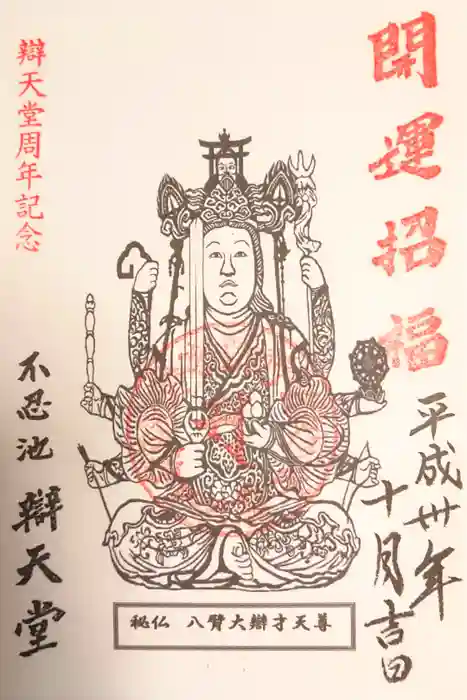 開運招福
平成卅年
十月吉日
秘仏 八臂大辯才天尊
辯天堂周年記念
不忍池 辯天堂